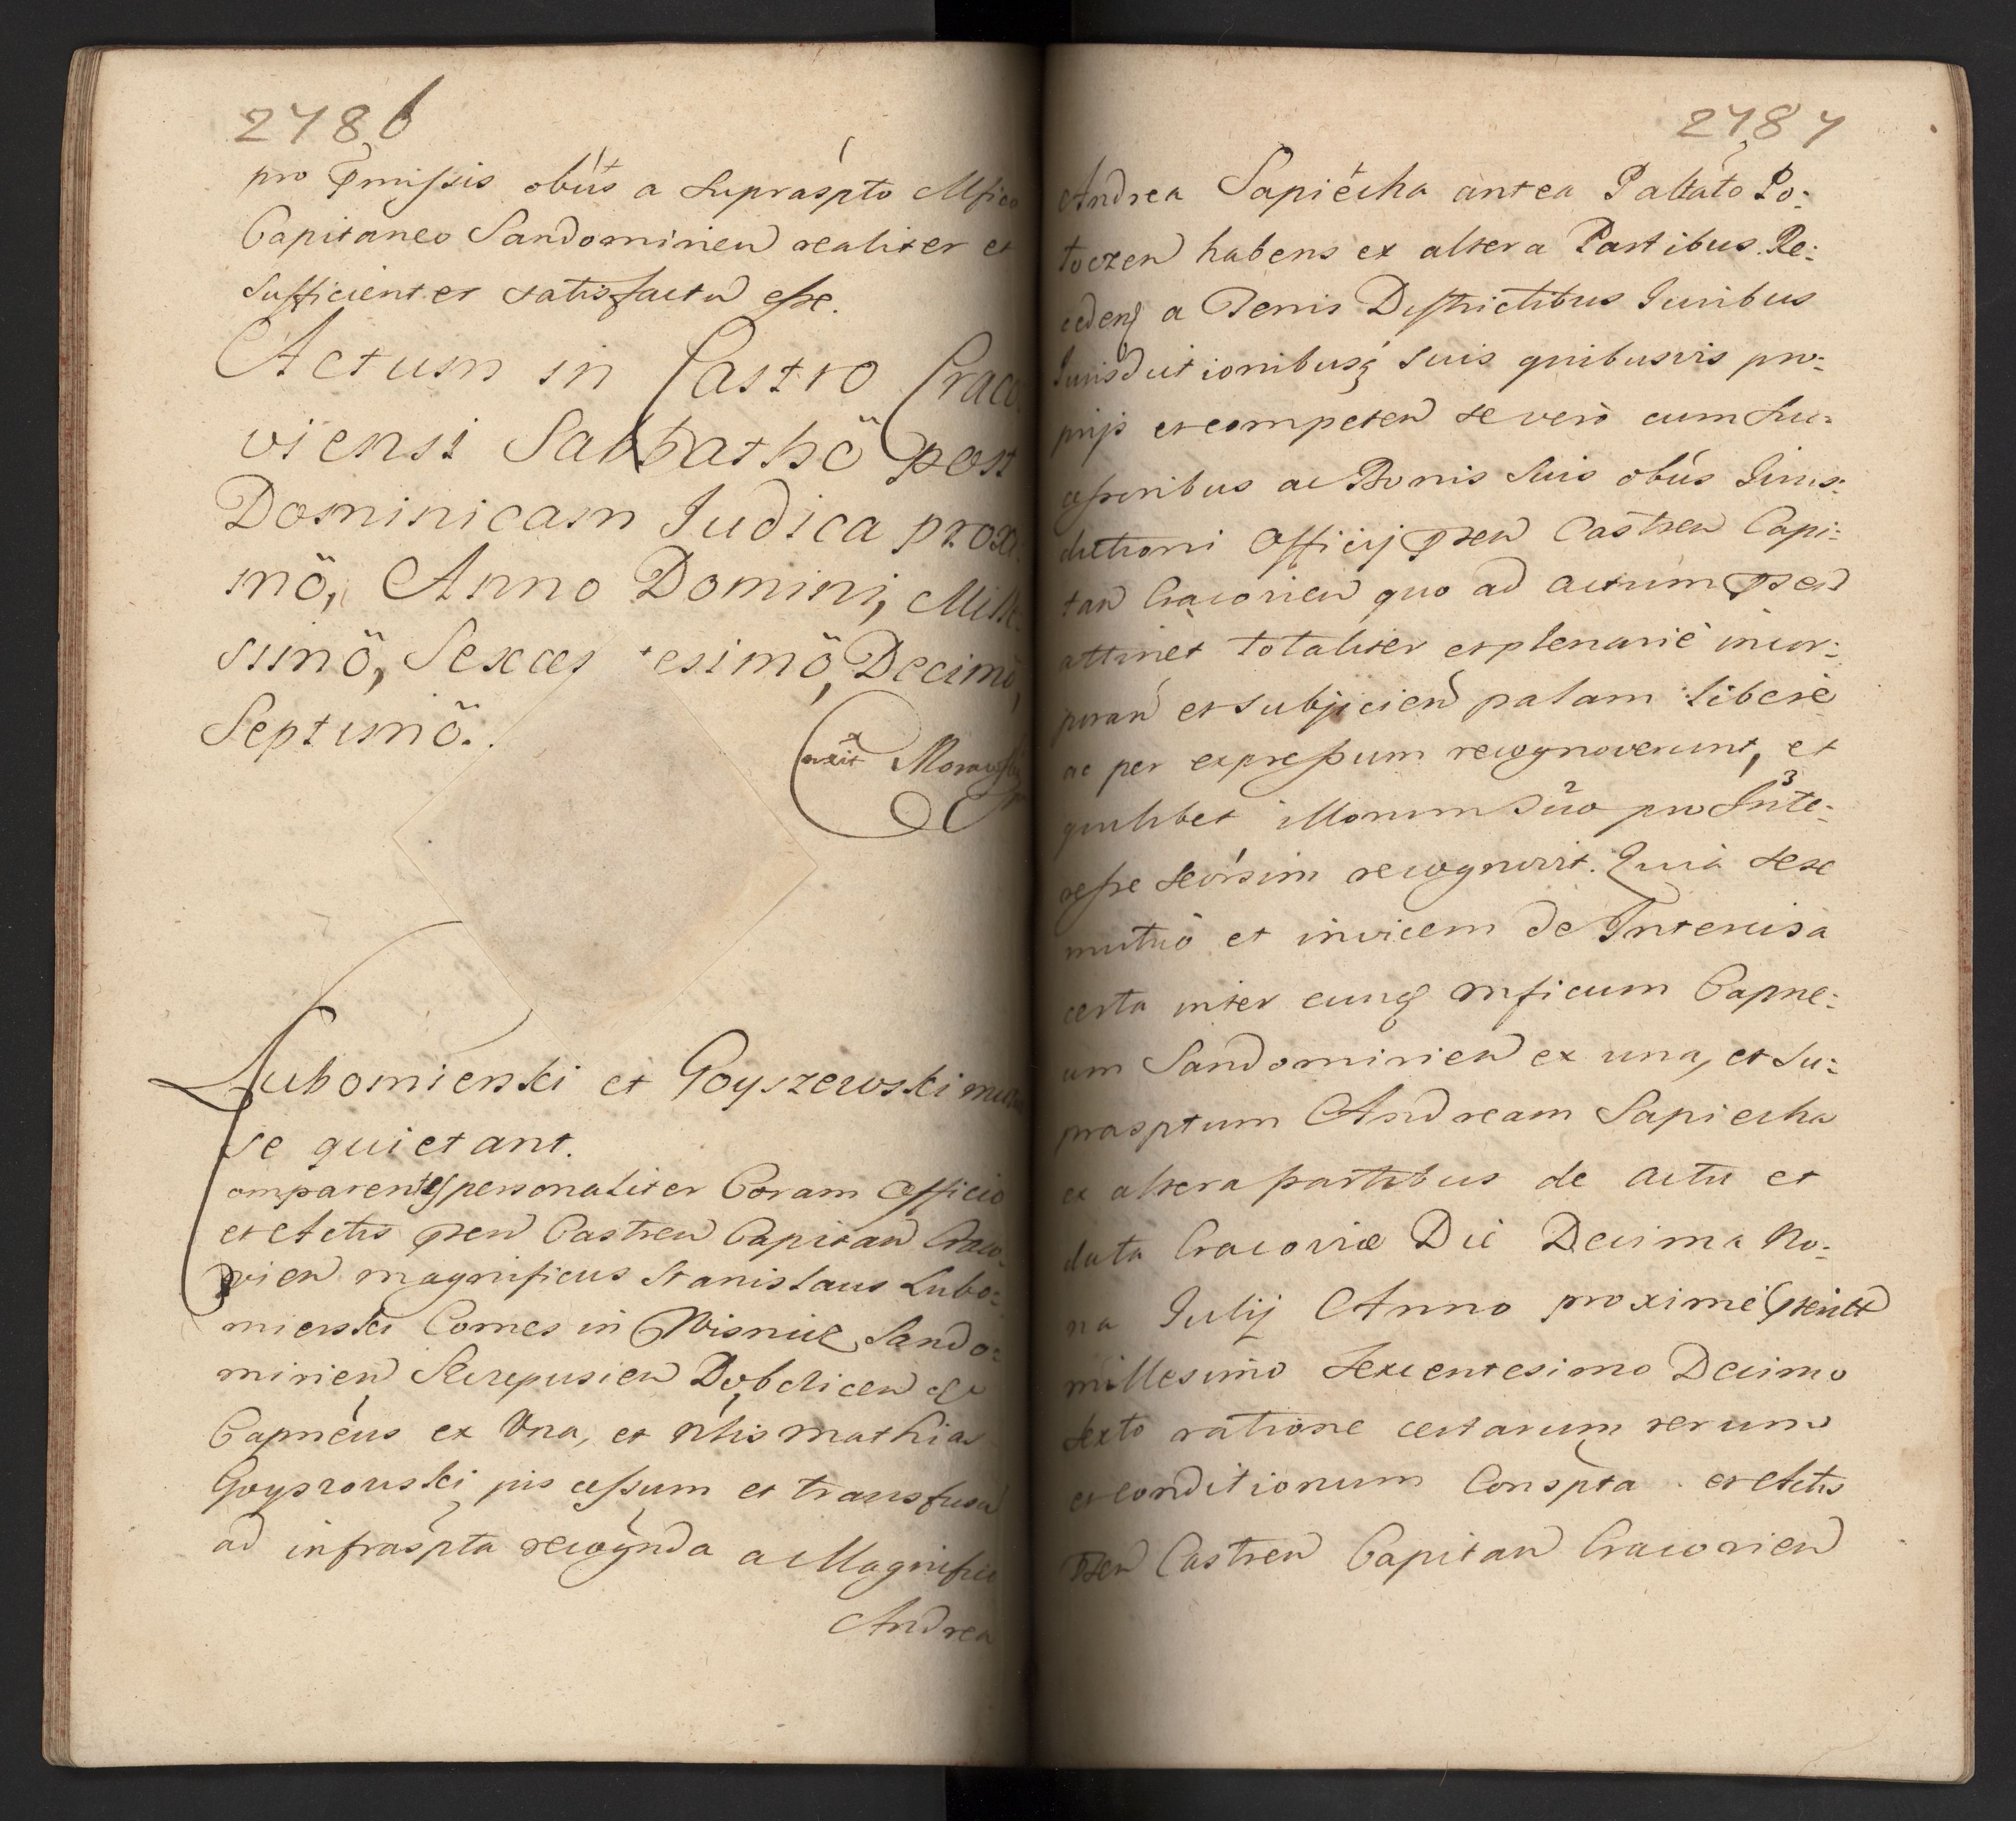 2786
pro pmissis obus a supraspto Mfico
Capitaneo Sandomirien realiter et
sufficienter satisfactu esse.
Actum in Castro Craco
viensi Sabbathö post
Dominicam Iudica proxi
mö, Anno Domini, Mille
simö, Sexcen tesimö, Decimö,
Septimö.
Morawski
Lubomierski et Goyszewski mutuo
se quietant.
omparentes personaliter Coram Officio
et Actis psen Castren Capitan Craco
vien magnificus Stanislaus Lubo:
mierski Comes in Wisnicz Sando:
mirien Scepusien Dobczicen
Capneus ex Una, et Nlis Mathias
Goyszowski jus cessum et transfusu
ad infraspta recognda a Magnifico
Andrea
2787
Andrea Sapiecha antea Pallato Po:
toczen habens ex altera Partibus. Re:
cedens a Terris Districtibus Iuribus
Iurisdictionibusq suis quibusvis pro:
prijs et competen se vero cum Suc
cessoribus ac Bonis suis obus Iuris:
dictioni Officij psen Castren Capi:
tan Cracovien quo ad actum psen
attinet totaliter et plenarie incor:
poran et subijcien palam libere
ac per expressum recognoverunt, et
quilibet illorum suo pro Inte:
resse seorsim recognovit. Quia sese
mutuo et invicem de Intercisa
certa inter eunq mficum Capne:
um Sandomirien ex una, et su:
prasptum Andream Sapiecha
ex altera partibus de actu et
data Cracoviæ Die Decima No:
na Iulij Anno proxime pterit
millesimo Sexcentesimo Decimo
sexto ratione certarum rerum
et conditionum Conspta et Actis
psen Castren Capitan Cracovien